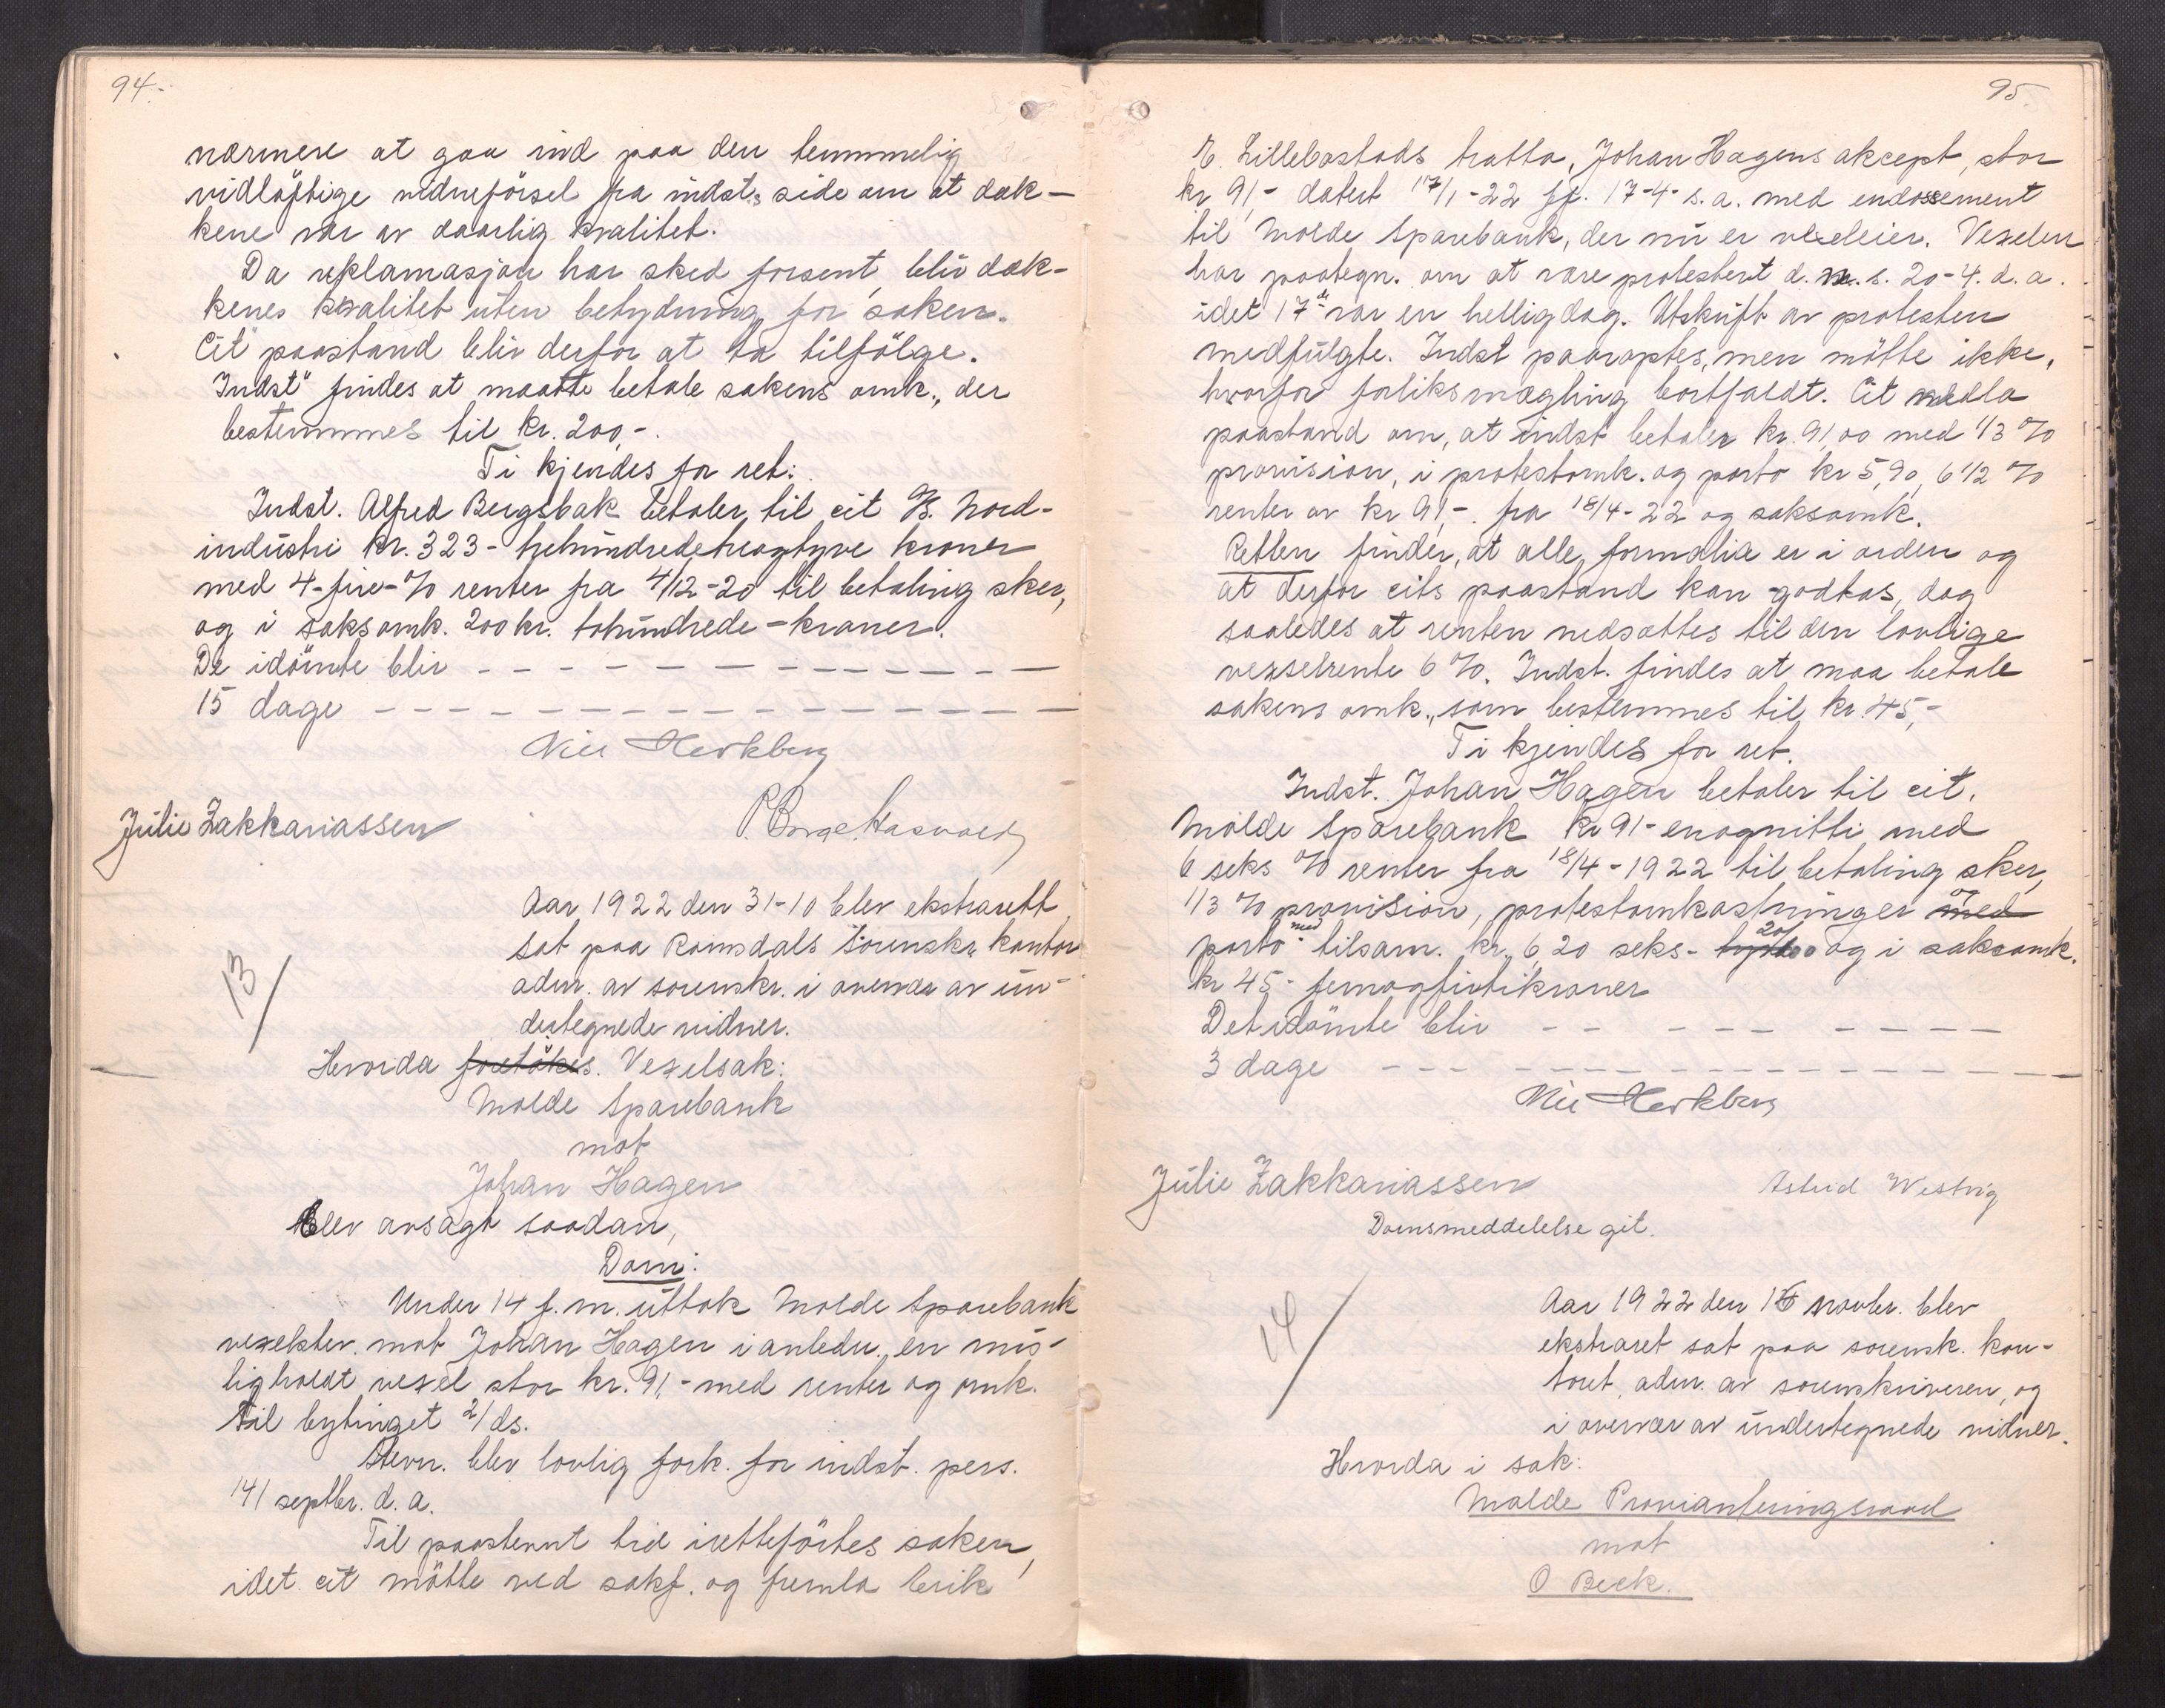 94.-
nærmere at gaa ind paa den temmelig
vidløftige vidneførsel fra indst.s side om at dæk-
kene var av daarlig kvalitet.
Da reklamasjon har sked forsent, blir dæk-
kenes kvalitet uten betydning for saken.
Cit paastand blir derfor at ta tilfølge.
Indst" findes at maatte betale sakens omk., der
bestemmes til kr. 200,-.
Ti kjendes for ret:
Indst. Alfred Bergsbak betaler til cit A/S. Nord-
industri kr. 323- trehundredetreogtyve kroner
med 4-fire-% renter fra 4/12-20 til betaling sker,
og i saksomk. 200 kr. tohundrede-kroner.
De idømte blir - - - - - - - - - - - -
15 dage - - - - - - - - - - - - - - -
Julie Zakkariassen
Aar 1922 den 31-10 blev ekstrarett
sat paa Romsdals Sorenskr. kontor
adm. av sorenskr. i overvær av un-
dertegnede vidner.
13/
Hvorda foretokes. Vexelsak:
Molde Sparebank
mot
Johan Hagen
Blev avsagt saadan,
Dom:
Under 14 f. m. uttok Molde Sparebank
vexelstev. mot Johan Hagen i anledn. en mis-
ligholdt vexel stor kr. 91,- med renter og omk.
til bytinget 2/ ds.
Stevn. blev lovlig fork. for indst. pers.
14/ septbr. d. a.
Til paastevnt tid iretteførtes saken,
idet cit møtte ved sakf. og fremla Erik
95.
E. Lillebostads tratta, Johan Hagens akcept, stor
kr 91,- datert 17/1-22 pf. 17-4- s. a. med endossement
til Molde Sparebank, der nu er vexeleier. Vexelen
har paategn. om at være protestert d. m. s. 20-4. d. a.
idet 17de var en helligdag. Utskrift av protesten
medfulgte. Indst paaroptes, men møtte ikke,
hvorfor forliksmægling bortfaldt. Cit nedla
paastand om, at indst betaler kr. 91,00 med 1/3 %
provision, i protestomk. og porto kr 5,90, 6 1/2 %
renter av kr 91,-. fra 18/4-22 og saksomk.
Retten finder, at alle formalia er i orden og
at derfor cits paastand kan godtas, dog
saaledes at renten nedsættes til den lovlige
vexselrente 6 %. Indst. findes at maa betale
sakens omk., som bestemmes til kr. 45,-
Ti kjendes for ret.
Indst. Johan Hagen betaler til cit.
Molde Sparebank kr 91- enognitti med
6 seks % renter fra 18/4-1922 til betaling sker,
1/3 % provision, protestomkostninger med og
porto med tilsam. kr. 6,20 seks- 20/ og i saksomk.
kr 45- femogførtikroner
Det idømte blir - - - - - - - - -
3 dage - - - - - - - - - - - - - - -
Julie Zakkariassen Astrid Westvig
Domsmeddelelse git.
14/
Aar 1922 den 16 novbr. blev
ekstraret sat paa sorensk. kon-
toret, adm. av sorenskriveren, og
i overvær av undertegnede vidner.
Hvorda i sak:
Molde Provianteringsraad
mot
O Beck.